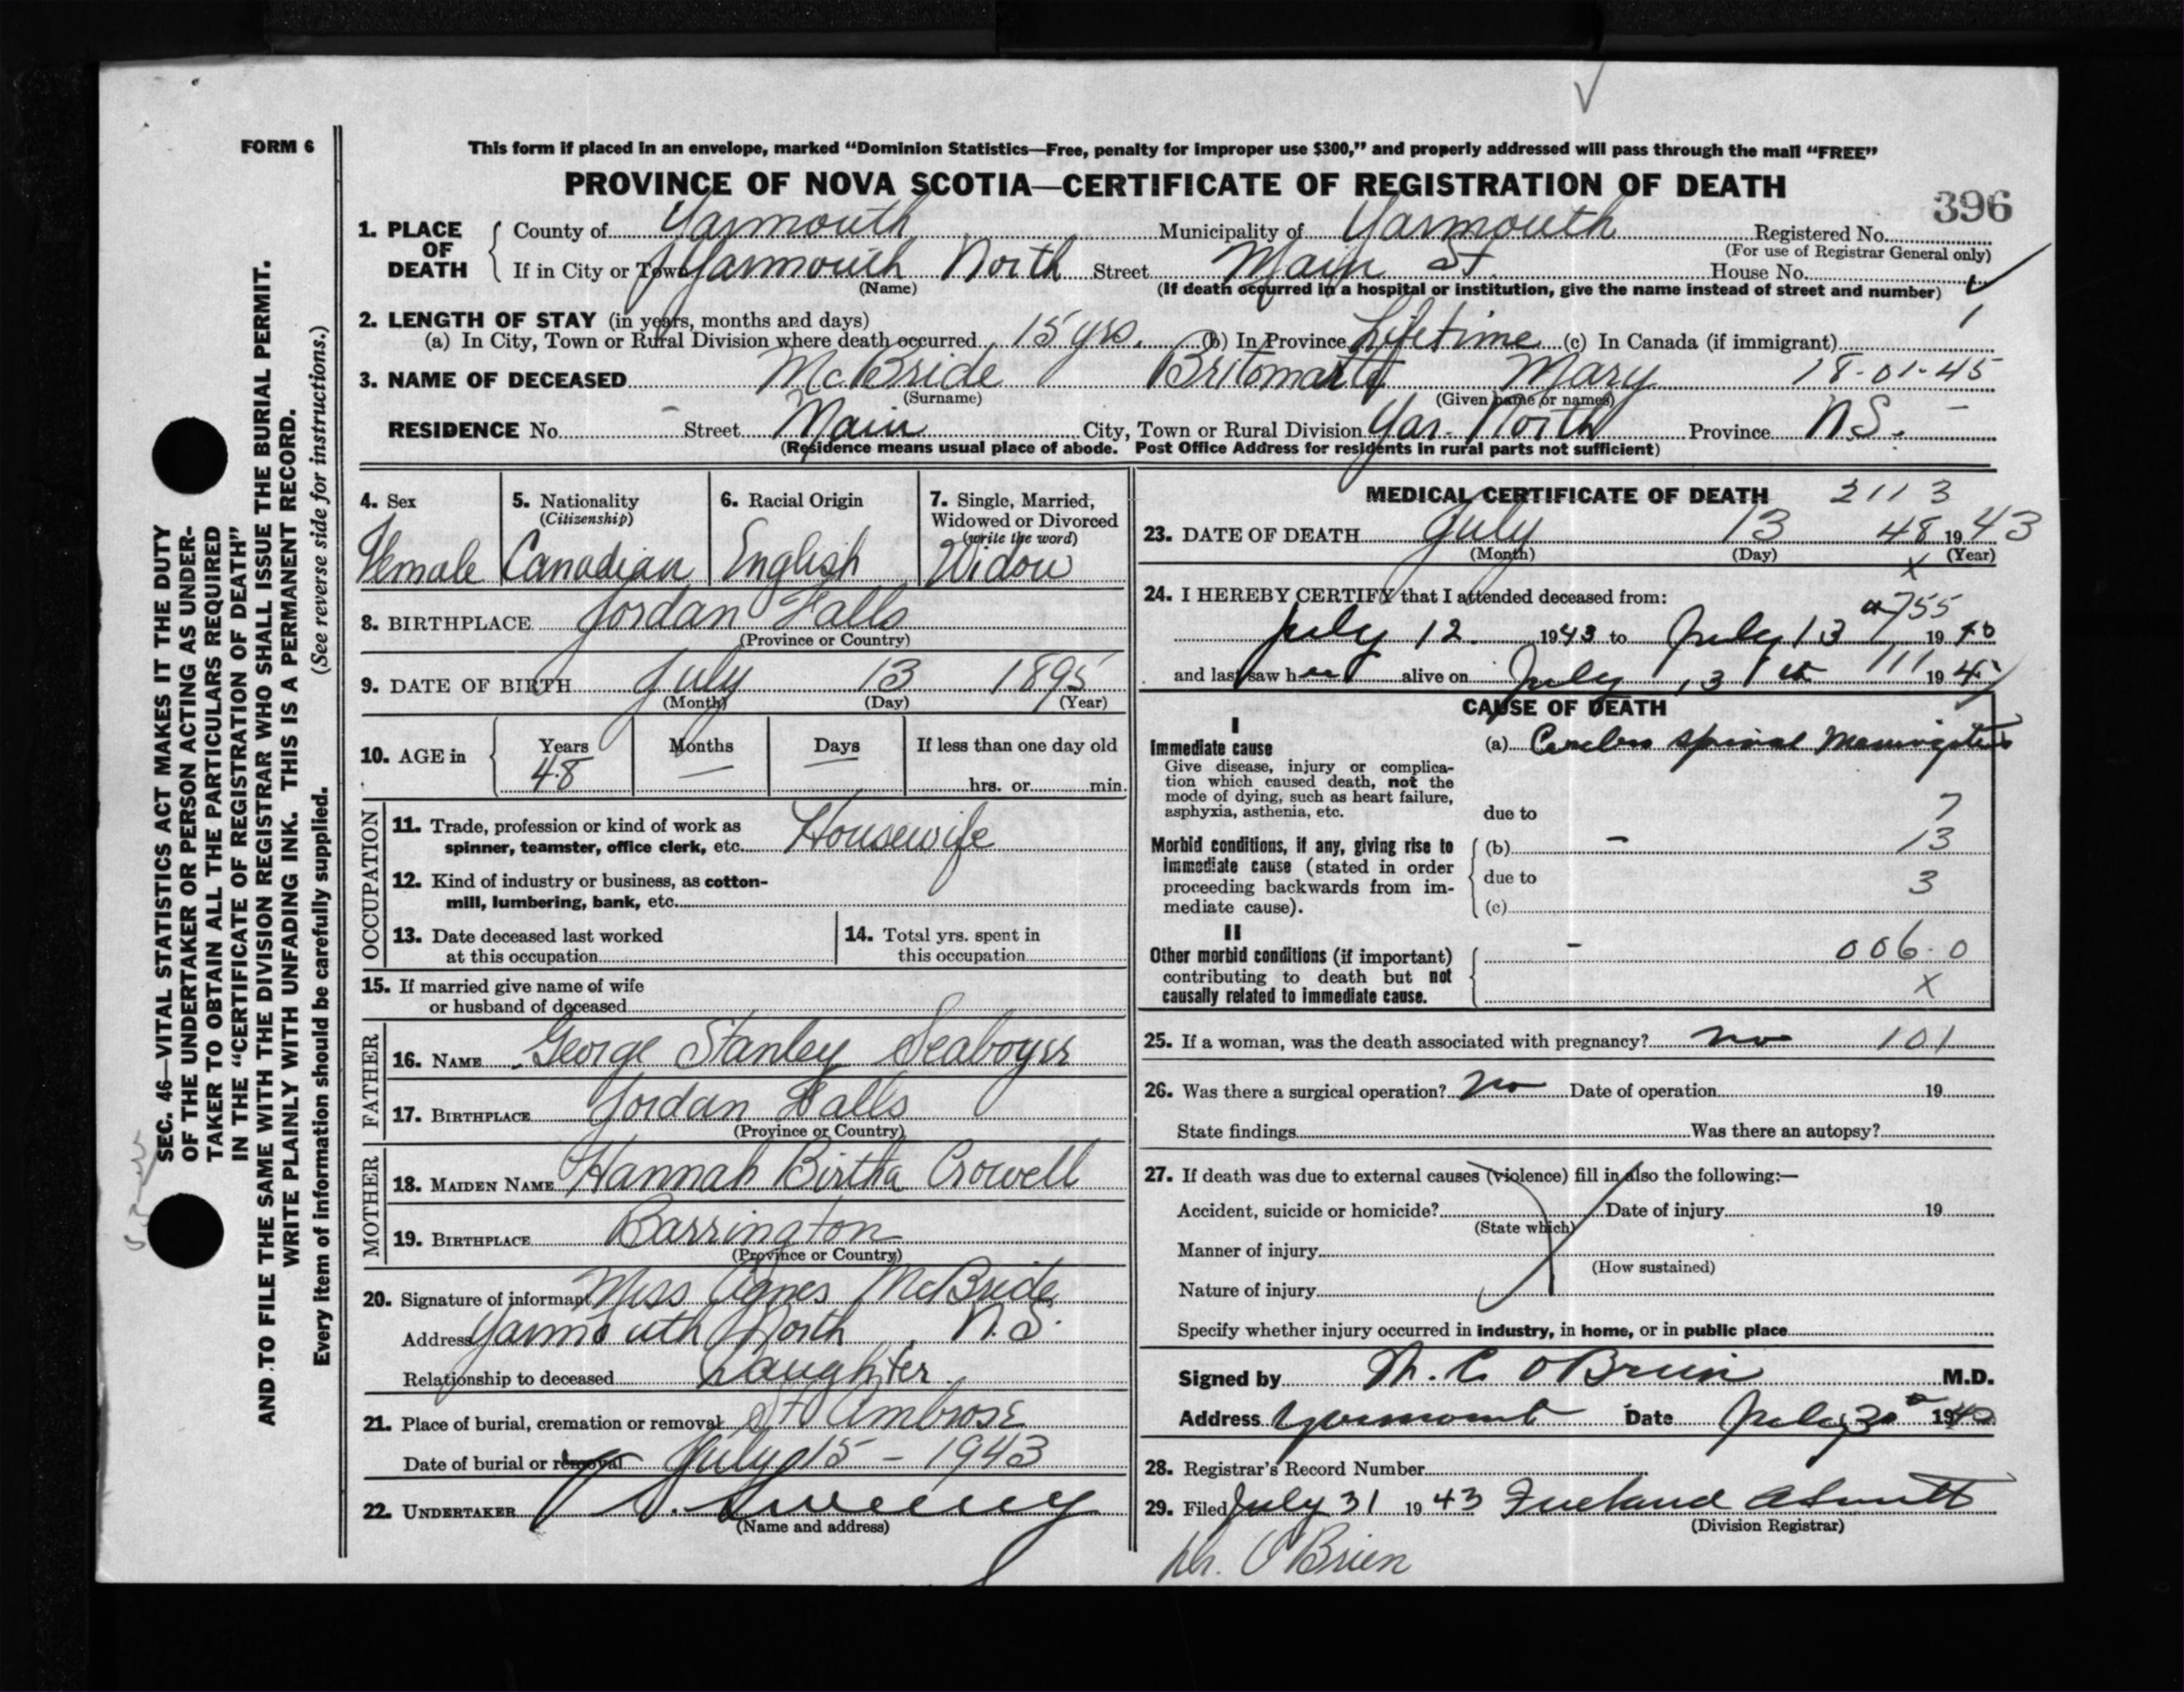 FORM 6
This form if placed in an envelope, marked "Dominion Statistics—Free, penalty for improper use $300," and properly addressed will pass through the mail "FREE"
PROVINCE OF NOVA SCOTIA—CERTIFICATE OF REGISTRATION OF DEATH
396
1. PLACE OF DEATH County of Yarmouth Municipality of Yarmouth Registered No.
(For use of Registrar General only)
If in City or Town Yarmouth North Street Main St. House No.
(Name) (If death occurred in a hospital or institution, give the name instead of street and number)
2. LENGTH OF STAY (in years, months and days)
(a) In City, Town or Rural Division where death occurred 15 yrs. (b) In Province Lifetime (c) In Canada (if immigrant) 1
3. NAME OF DECEASED McBride Britomarte Mary 18-01-45
(Surname) (Given name or names)
RESIDENCE No. - Street Main City, Town or Rural Division Yar. North Province N.S. -
(Residence means usual place of abode. Post Office Address for residents in rural parts not sufficient)
4. Sex Female
5. Nationality (Citizenship) Canadian
6. Racial Origin English
7. Single, Married, Widowed or Divorced (write the word) Widow
8. BIRTHPLACE Jordan Falls
(Province or Country)
9. DATE OF BIRTH July 13 1895
(Month) (Day) (Year)
10. AGE in Years 48 Months — Days — If less than one day old
hrs. or min.
OCCUPATION
11. Trade, profession or kind of work as
spinner, teamster, office clerk, etc. Housewife
12. Kind of industry or business, as cotton-
mill, lumbering, bank, etc.
13. Date deceased last worked
at this occupation
14. Total yrs. spent in
this occupation
15. If married give name of wife
or husband of deceased
FATHER
16. NAME George Stanley Seaboyer
17. BIRTHPLACE Jordan Falls
(Province or Country)
MOTHER
18. MAIDEN NAME Hannah Birtha Crowell
19. BIRTHPLACE Barrington
(Province or Country)
20. Signature of informant Miss Agnes McBride
Address Yarmouth North, N.S.
Relationship to deceased Daughter.
21. Place of burial, cremation or removal St Ambrose
Date of burial or removal July 15 - 1943
22. UNDERTAKER V. S. Sweeny
(Name and address)
MEDICAL CERTIFICATE OF DEATH 2113
23. DATE OF DEATH July 13 48 1943
(Month) (Day) (Year)
x
24. I HEREBY CERTIFY that I attended deceased from:
755
July 12 1943 to July 13 19
and last saw her alive on July 13th 111 19
CAUSE OF DEATH
I
Immediate cause (a) Cerebro Spinal Meningitis
Give disease, injury or complica-
tion which caused death, not the
mode of dying, such as heart failure,
asphyxia, asthenia, etc. due to 7
Morbid conditions, if any, giving rise to (b) - 13
immediate cause (stated in order
proceeding backwards from im- due to 3
mediate cause). (c)
II
Other morbid conditions (if important) - 006.0
contributing to death but not
causally related to immediate cause. X
25. If a woman, was the death associated with pregnancy? no 101
26. Was there a surgical operation? no Date of operation 19
State findings Was there an autopsy?
27. If death was due to external causes (violence) fill in also the following:—
Accident, suicide or homicide? Date of injury 19
(State which)
Manner of injury
(How sustained)
Nature of injury
Specify whether injury occurred in industry, in home, or in public place
Signed by M. C. OBrien M.D.
Address Yarmouth Date July 30 19
28. Registrar's Record Number
29. Filed July 31 1943
(Division Registrar)
Dr. O'Brien
SEC. 46—VITAL STATISTICS ACT MAKES IT THE DUTY
OF THE UNDERTAKER OR PERSON ACTING AS UNDER-
TAKER TO OBTAIN ALL THE PARTICULARS REQUIRED
IN THE "CERTIFICATE OF REGISTRATION OF DEATH"
AND TO FILE THE SAME WITH THE DIVISION REGISTRAR WHO SHALL ISSUE THE BURIAL PERMIT.
WRITE PLAINLY WITH UNFADING INK. THIS IS A PERMANENT RECORD.
Every item of information should be carefully supplied. (See reverse side for instructions.)